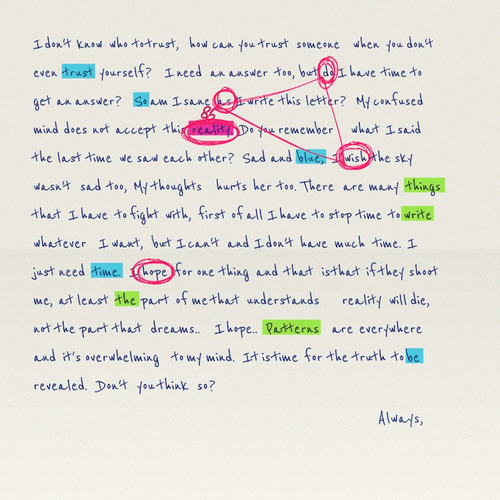 I don't know who to trust, how can you trust someone when you don't
even trust yourself? I need an answer too, but do I have time to
get an answer? So am I sane as I write this letter? My confused
mind does not accept this reality. Do you remember what I said
the last time we saw each other? Sad and blue, I wish the sky
wasn't sad too, My thoughts hurts her too. There are many things
that I have to fight with, first of all I have to stop time to write
whatever I want, but I can't and I don't have much time. I
just need time. I hope for one thing and that is that if they shoot
me, at least the part of me that understands reality will die,
not the part that dreams.. I hope.. Patterns are everywhere
and it's overwhelming to my mind. It is time for the truth to be
revealed. Don't you think so?
Always,